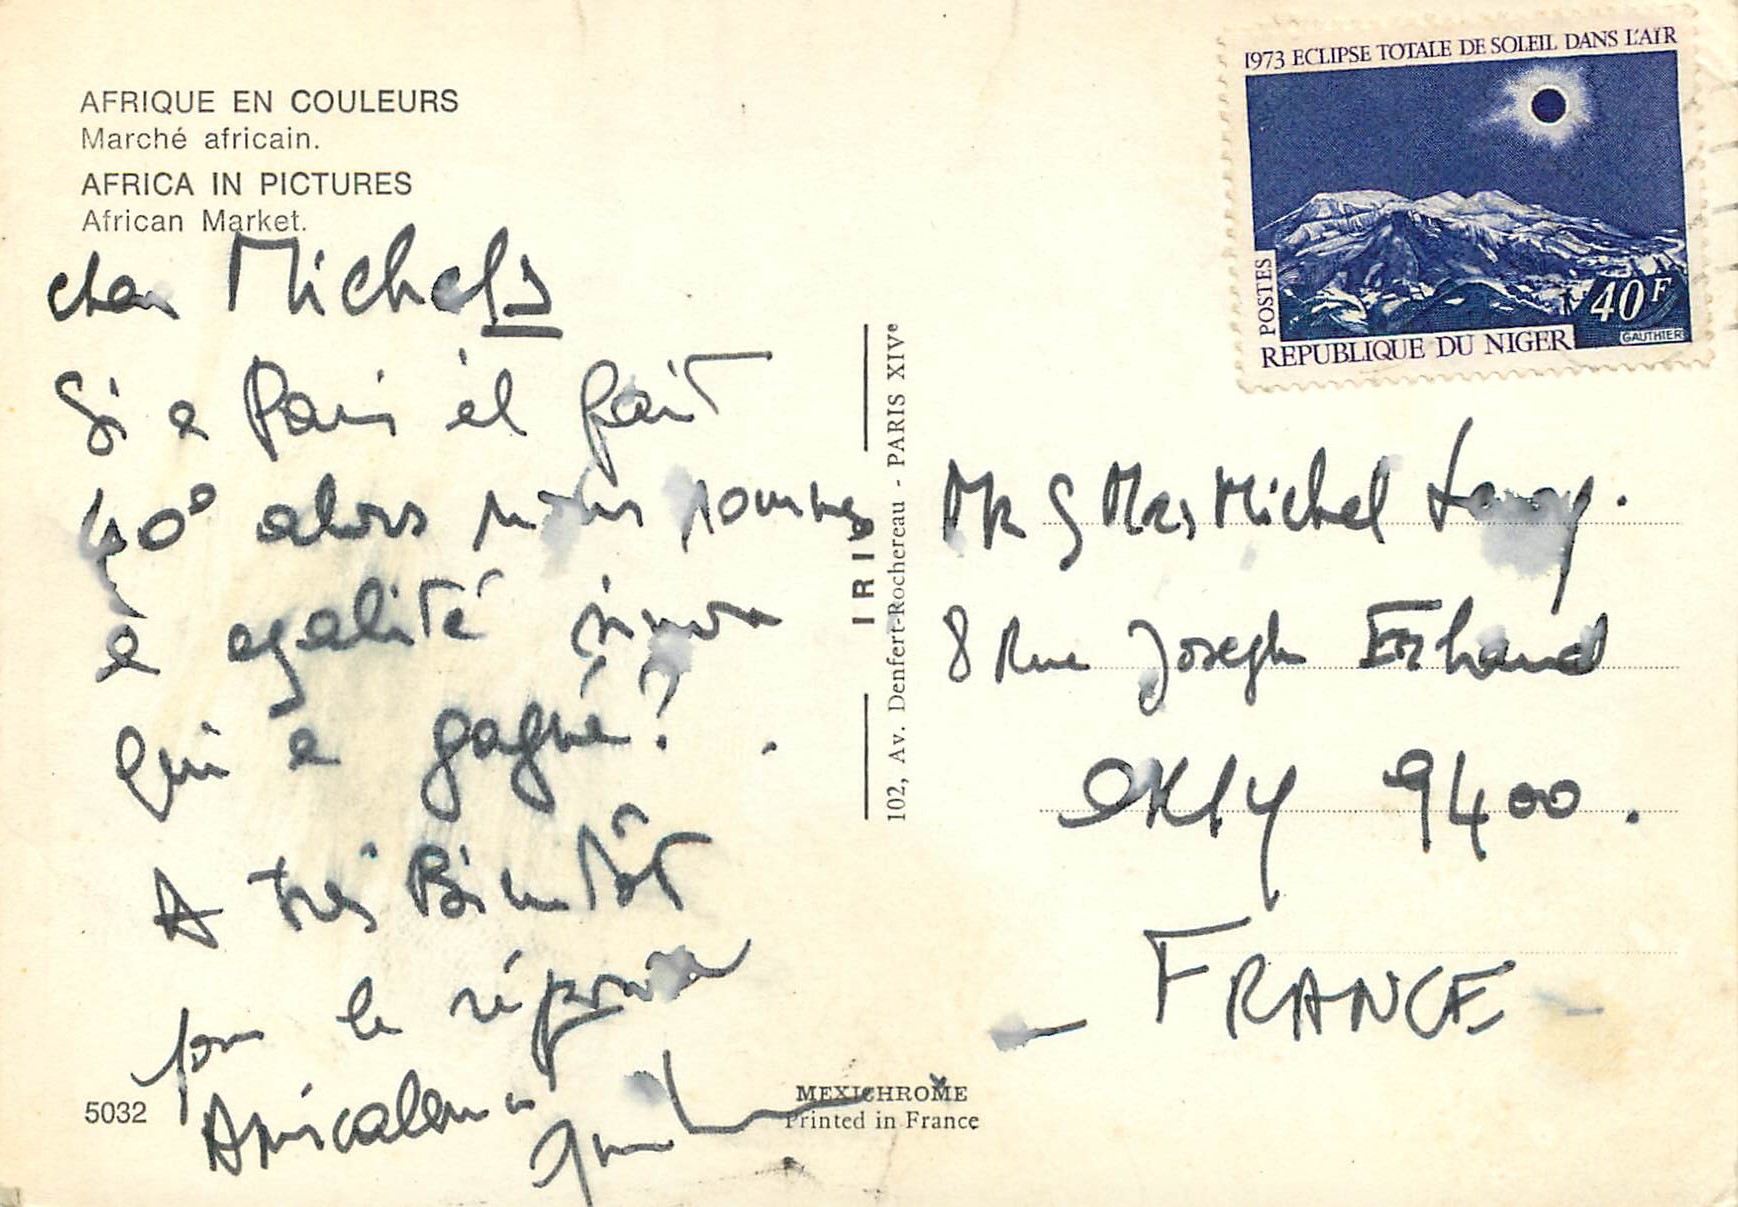 AFRIQUE EN COULEURS
Marché africain.
AFRICA IN PICTURES
African Market.
cher Michels
Si a Paris il fait
40° alors nous sommes
a egalité sinon
Qui a gagné?
A très Bientôt
pour la réponse
Amicalement
5032
IRIS
102, Av. Denfert-Rochereau - PARIS XIVe
MEXICHROME
Printed in France
1973 ECLIPSE TOTALE DE SOLEIL DANS L'AÏR
POSTES
40F
GAUTHIER
REPUBLIQUE DU NIGER
Mr & Mrs Michel
8 Rue Joseph
ORLY 9400.
- FRANCE -